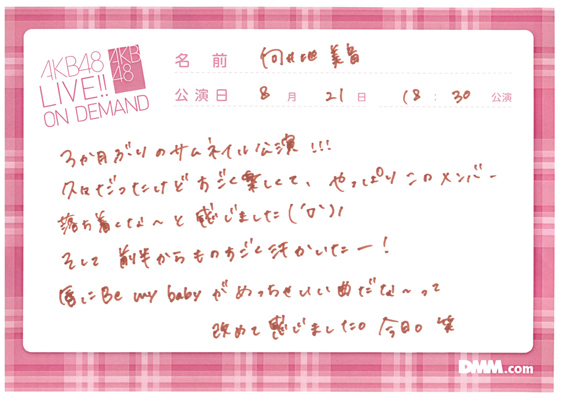 AKB48
LIVE!!
ON DEMAND
AKB
48
名前 向井地 美音
公演日 8月 21日 18:30 公演
3か月ぶりのサムネイル公演!!!
久々だったけどすごく楽しくて、やっぱりこのメンバー
落ち着くな〜と感じました('ロ')ノ
そして前半からものすごく汗かいたー!
唇にBe my babyがめっちゃいい曲だな〜って
改めて感じました。今日。笑
DMM.com